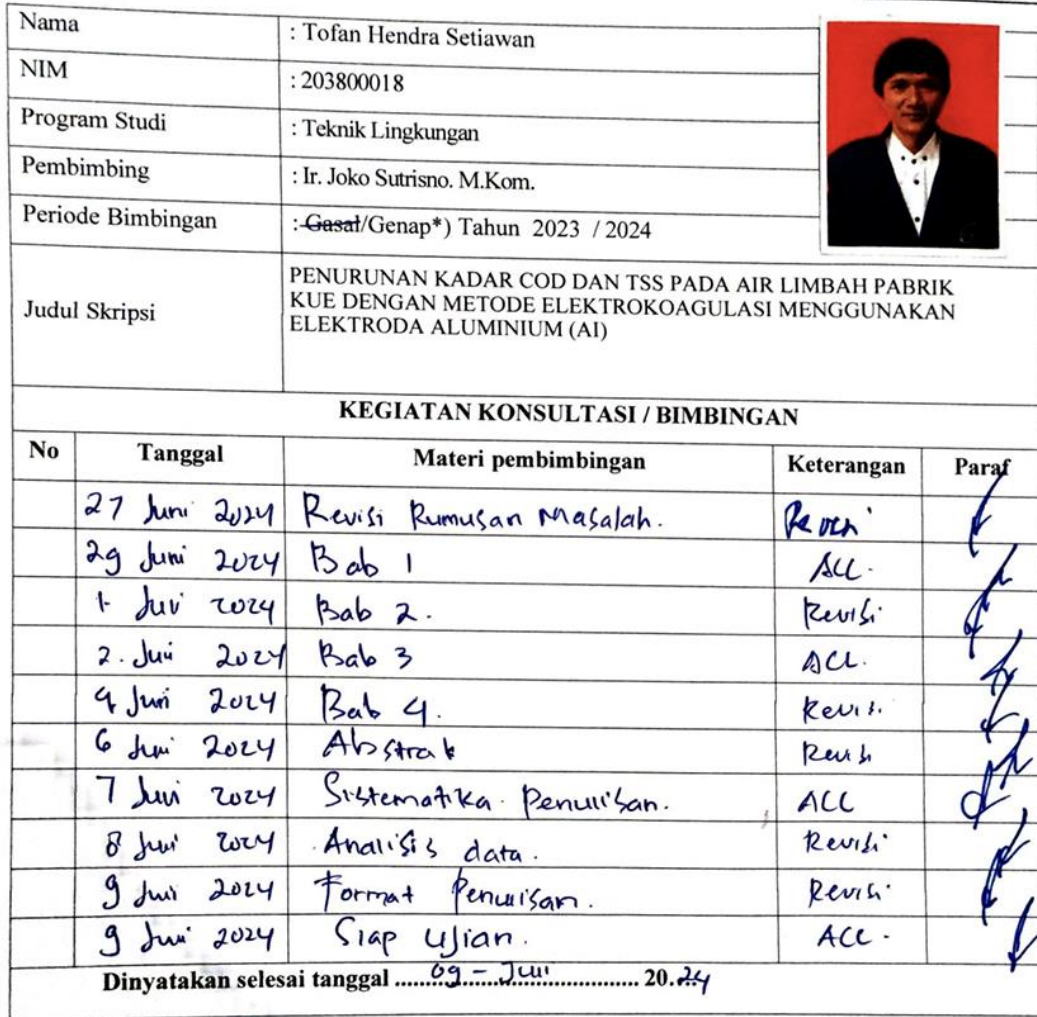 Nama : Tofan Hendra Setiawan
NIM : 203800018
Program Studi : Teknik Lingkungan
Pembimbing : Ir. Joko Sutrisno. M.Kom.
Periode Bimbingan : Gasal/Genap*) Tahun 2023 / 2024
Judul Skripsi
PENURUNAN KADAR COD DAN TSS PADA AIR LIMBAH PABRIK
KUE DENGAN METODE ELEKTROKOAGULASI MENGGUNAKAN
ELEKTRODA ALUMINIUM (Al)
KEGIATAN KONSULTASI / BIMBINGAN
No Tanggal Materi pembimbingan Keterangan Paraf
27 Juni 2024 Revisi Rumusan Masalah. Revisi
29 Juni 2024 Bab 1 ACC.
1. 2024 Bab 2. Revisi
2. 2024 Bab 3 ACC.
4 2024 Bab 4. Revisi
6 2024 Abstrak Revisi
7 2024 Sistematika Penulisan. ACC
8 2024 Analisis data. Revisi
9 2024 Format Penulisan. Revisi
9 2024 Siap Ujian. ACC.
Dinyatakan selesai tanggal ..... 09 - Juli ..... 20.24